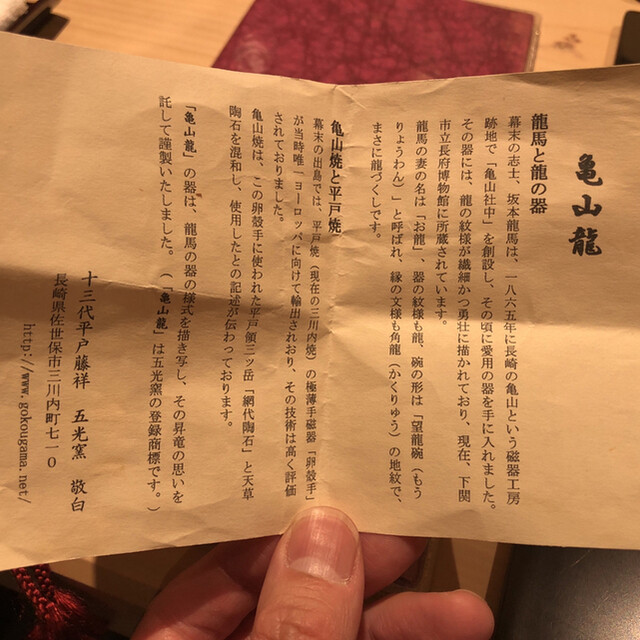 亀山龍
龍馬と龍の器
幕末の志士、坂本龍馬は、一八六五年に長崎の亀山という磁器工房
跡地で「亀山社中」を創設し、その頃に愛用の器を手に入れました。
その器には、龍の紋様が繊細かつ勇壮に描かれており、現在、下関
市立長府博物館に所蔵されています。
龍馬の妻の名は「お龍」、器の紋様も龍、碗の形は「望龍碗（もう
りょうわん）」と呼ばれ、縁の文様も角龍（かくりゅう）の地紋で、
まさに龍づくしです。
亀山焼と平戸焼
幕末の出島では、平戸焼（現在の三川内焼）の極薄手磁器「卵殻手」
が当時唯一ヨーロッパに向けて輸出されおり、その技術は高く評価
されておりました。
亀山焼は、この卵殻手に使われた平戸領三ツ岳「網代陶石」と天草
陶石を混和し、使用したとの記述が伝わっております。
「亀山龍」の器は、龍馬の器の様式を描き写し、その昇竜の思いを
託して謹製いたしました。（「亀山龍」は五光窯の登録商標です。）
十三代平戸藤祥 五光窯 敬白
長崎県佐世保市三川内町七一〇
http://www.gokougama.net/